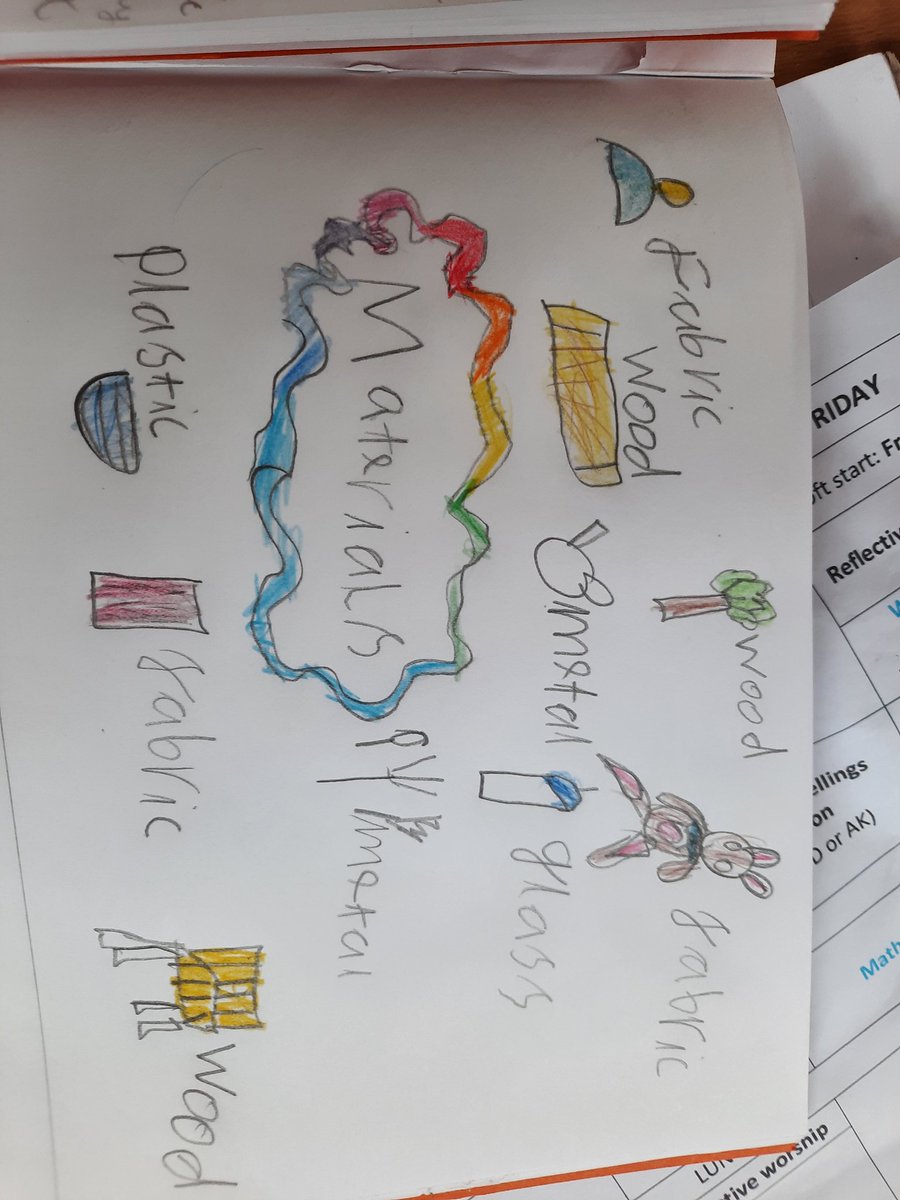 Fabric
wood
fabric
Wood
metal
glass
Materials
metal
Plastic
fabric
Wood
RIDAY
ft start: Fr
Reflectiv
ellings
on
D or AK)
Math
LUN
tive worship